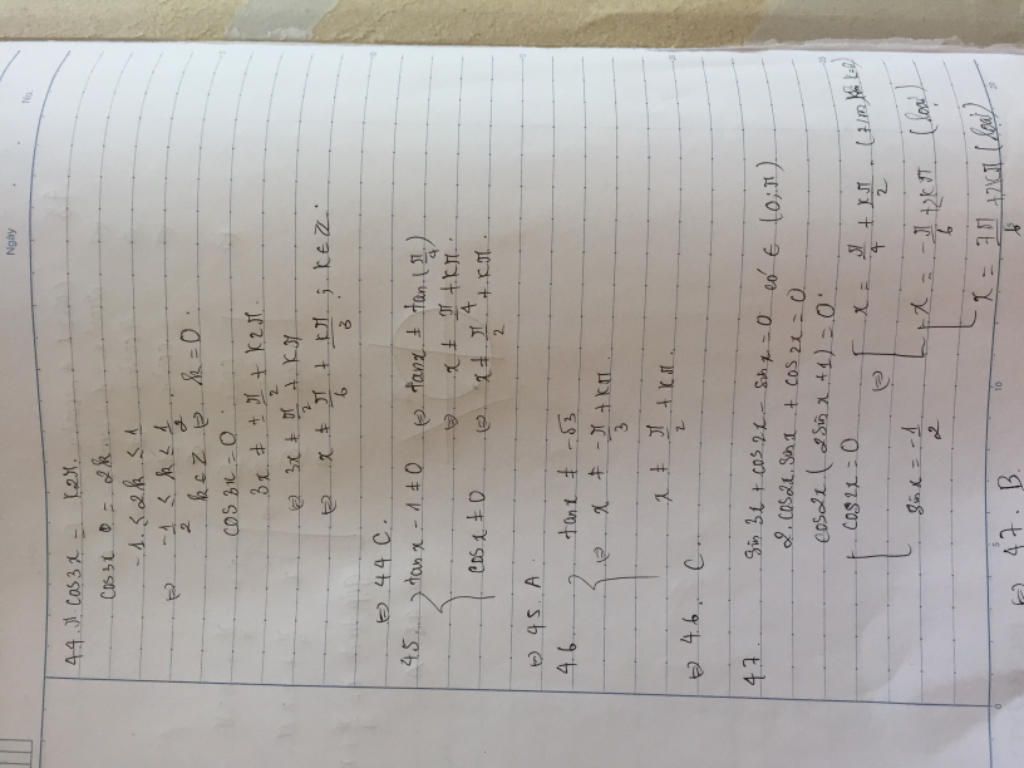 Ngày
No.
44. π cos3x = k2π
cos3x = 2k
-1 ≤ 2k ≤ 1
⇔ -1/2 ≤ k ≤ 1/2
k ∈ Z ⇔ k = 0.
cos3x = 0
3x ≠ ± π/2 + k2π.
⇔ 3x ≠ π/2 + kπ
⇔ x ≠ π/6 + kπ/3 ; k ∈ Z.
⇔ 44 C.
45. { tanx - 1 ≠ 0 ⇔ tanx ≠ tan(π/4)
⇔ x ≠ π/4 + kπ.
cosx ≠ 0 ⇔ x ≠ π/2 + kπ.
⇔ 45 A.
46. tanx ≠ -√3
{ ⇔ x ≠ -π/3 + kπ
x ≠ π/2 + kπ.
⇔ 46. C
47. sin3x + cos2x - sinx = 0 có ∈ (0;π)
2.cos2x.sinx + cos2x = 0
cos2x (2sinx + 1) = 0.
[ cos2x = 0 ⇔ [ x = π/4 + kπ/2. (t/m)
sinx = -1/2 [ x = -π/6 + 2kπ (loại)
x = 7π/6 + 2kπ (loại)
⇔ 47. B.